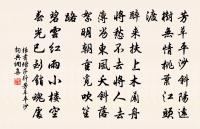 芳草平沙斜陽遠
樹無情桃葉江頭
渡
醉來扶上木蘭舟
將愁不去將人去
薄劣東風夭斜落
絮明朝重覓吹笙
路
碧雲紅雨小樓空
春光已到銷魂處
張翥踏莎行芳草平沙